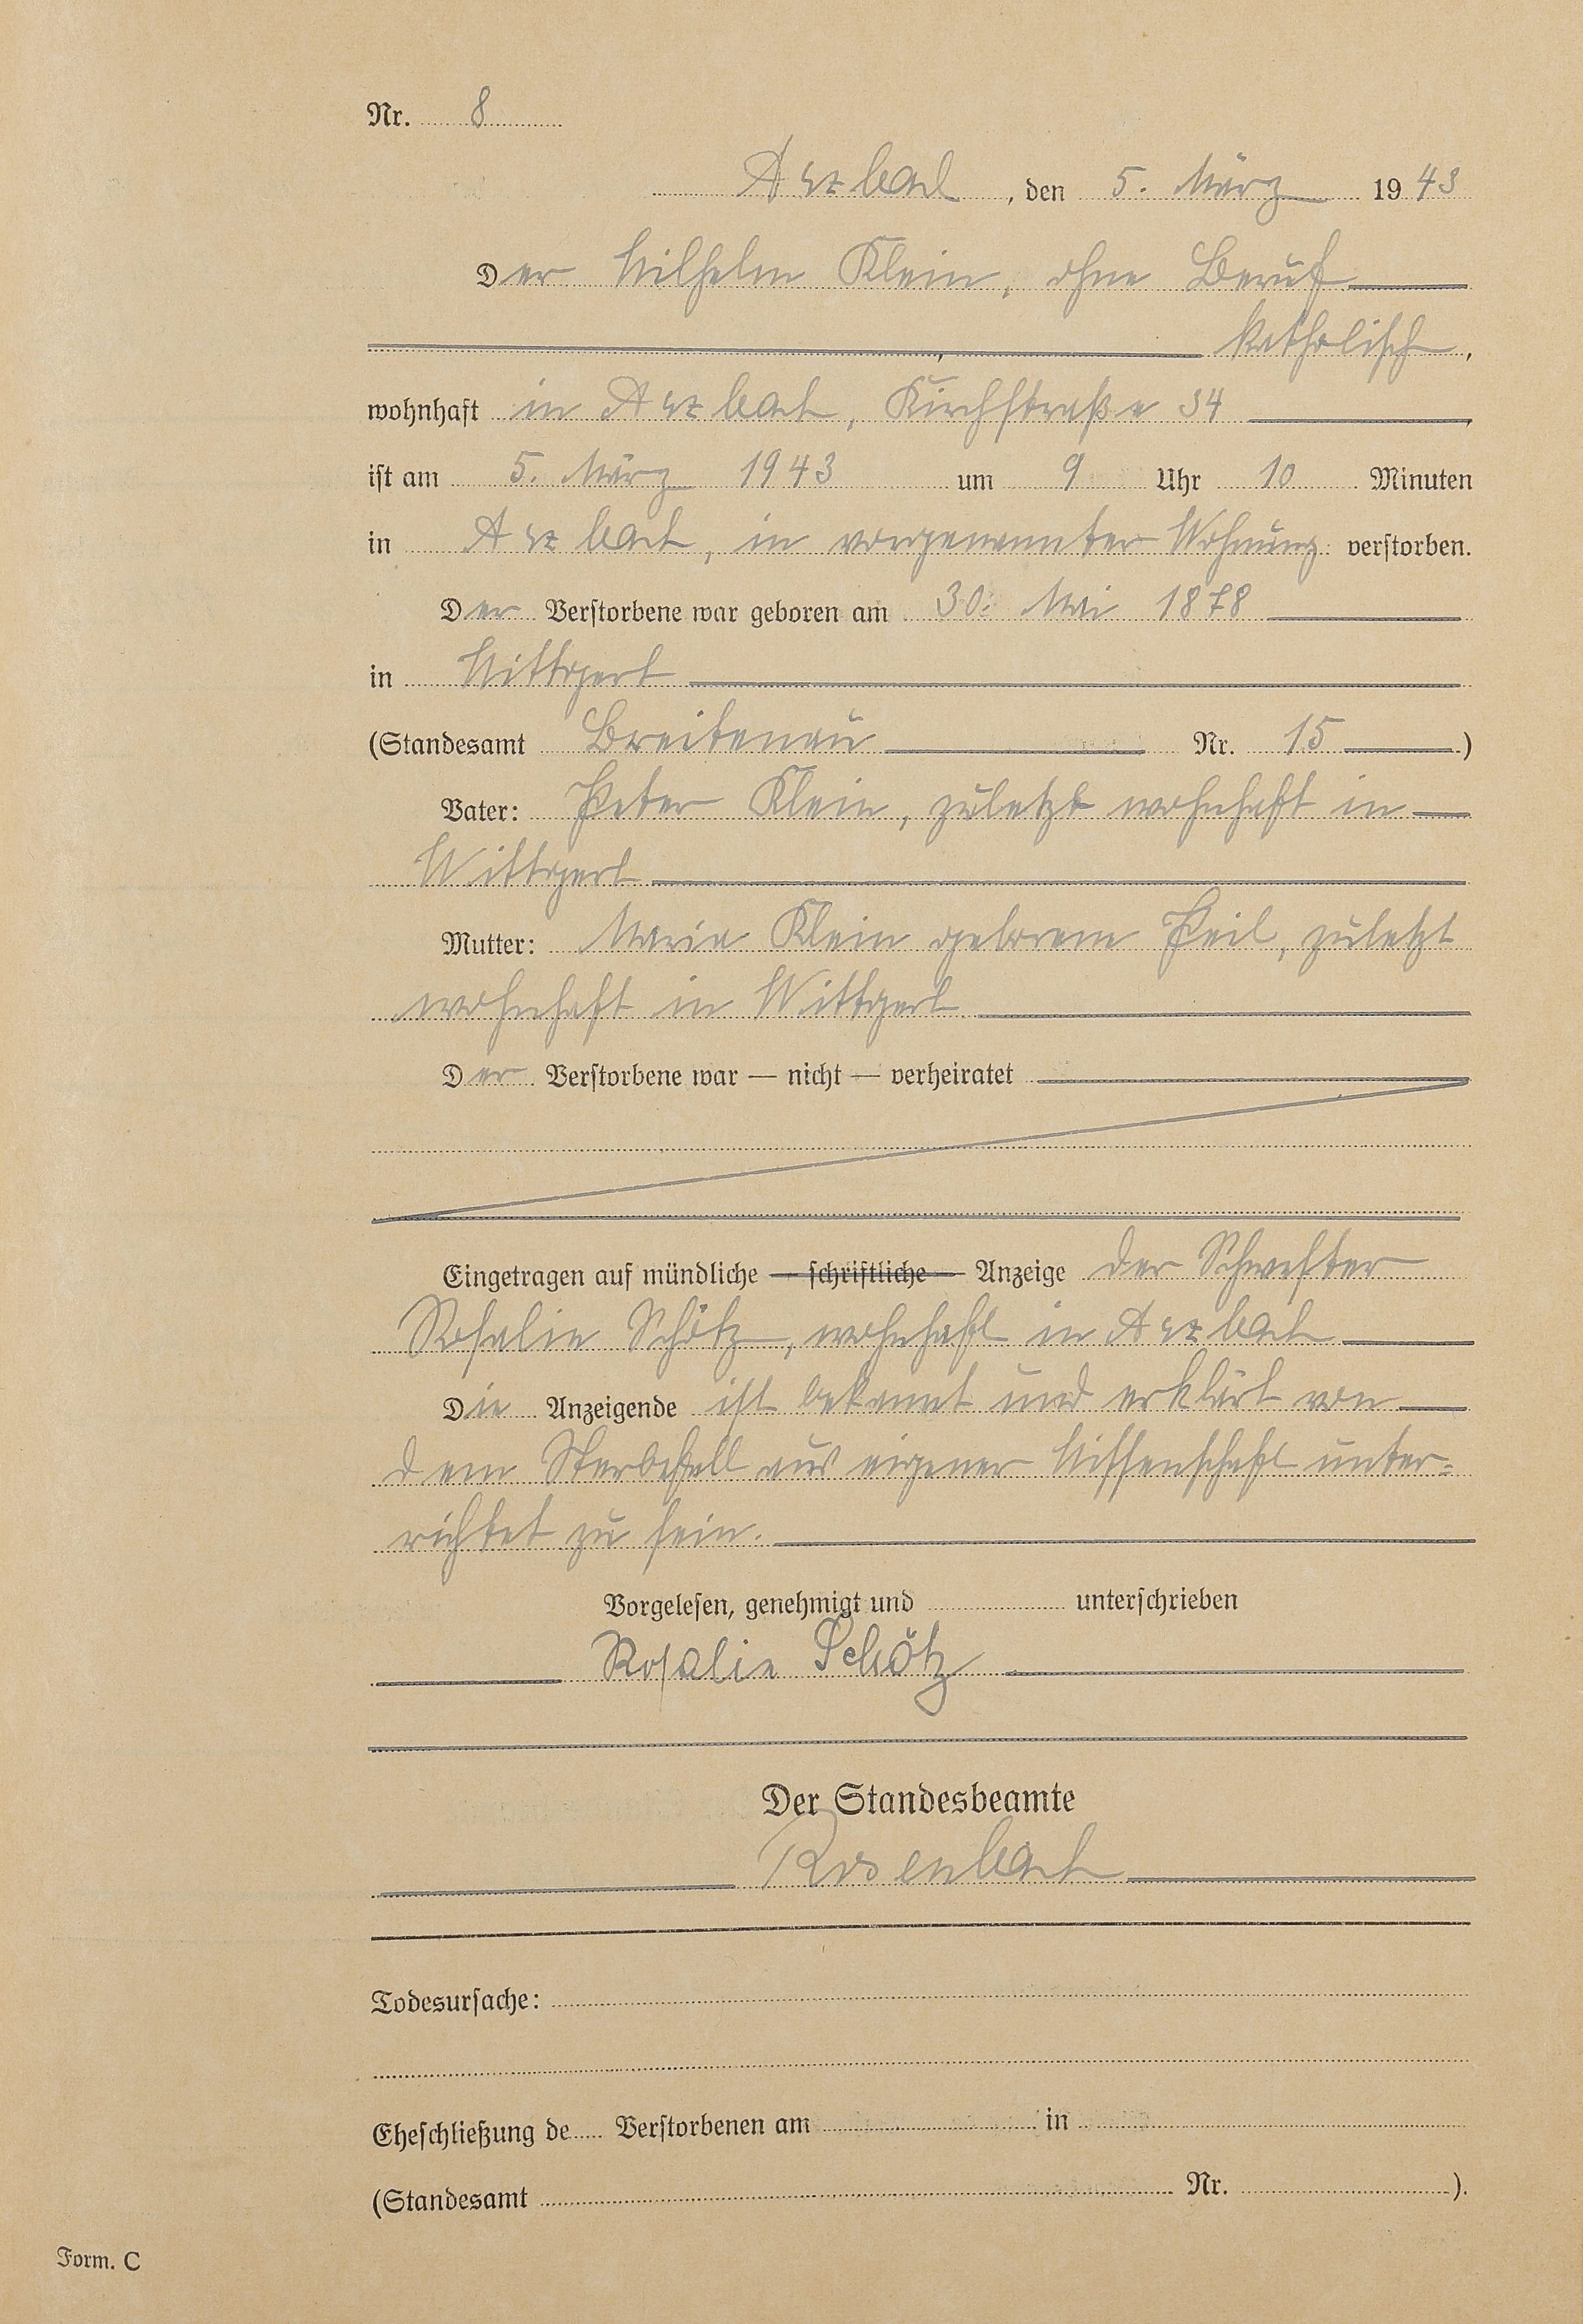 Nr. 8
Arzbach, den 5. März 1943
Der Wilhelm Klein, ohne Beruf
katholisch,
wohnhaft in Arzbach, Kirchstraße 34
ist am 5. März 1943 um 9 Uhr 10 Minuten
in Arzbach, in vorgenannter Wohnung verstorben.
Der Verstorbene war geboren am 30. Mai 1878
in Wittgert
(Standesamt Breitenau Nr. 15)
Vater: Peter Klein, zuletzt wohnhaft in
Wittgert
Mutter: Maria Klein geborene Peil, zuletzt
wohnhaft in Wittgert
Der Verstorbene war — nicht — verheiratet
Eingetragen auf mündliche — schriftliche — Anzeige der Schwester
Rosalie Schötz, wohnhaft in Arzbach
Die Anzeigende ist bekannt und erklärt von
dem Sterbefall aus eigener Wissenschaft unter-
richtet zu sein.
Vorgelesen, genehmigt und unterschrieben
Rosalie Schötz
Der Standesbeamte
Rosenbach
Todesursache:
Eheschließung de Verstorbenen am in
(Standesamt Nr. ).
Form. C